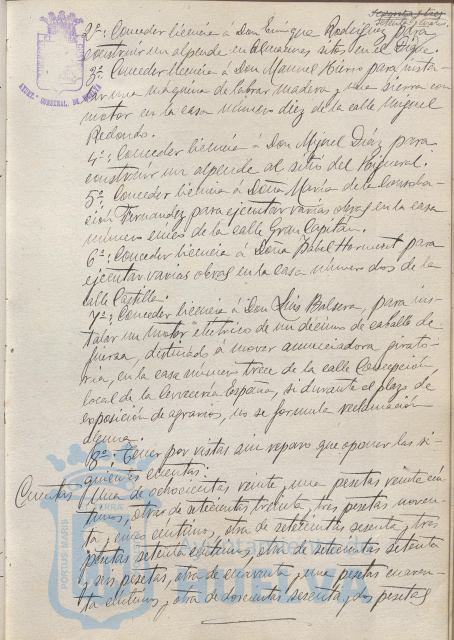 setenta y cuatro
2º: Conceder licencia á Don Enrique Rodríguez para
construir un alpende en almacenes sitos en el Dique.
3º: Conceder licencia á Don Manuel Hierro para insta-
lar una maquina de labrar madera y una sierra con
motor en la casa número diez de la calle Miguel
Redondo.
4º: Conceder licencia á Don Miguel Díaz para
construir un alpende al sitio del Higueral.
5º: Conceder licencia á Doña María de la Consola-
ción Fernandez para ejecutar varias obras en la casa
número cinco de la calle Gran Capitán.
6º: Conceder licencia á Doña Isabel para
ejecutar varias obras en la casa número dos de la
calle Castilla.
7º: Conceder licencia á Don Luis Balsera, para ins-
talar un motor electrico de un décimo de caballo de
fuerza, destinado á mover anunciadora girato-
ria, en la casa número trece de la calle Concepción
local de la Cervecería España, si durante el plazo de
exposición de agravios, no se formula reclamación
alguna.
8º: Tener por vistas sin reparo que oponer las si-
guientes cuentas:
Cuentas Una de ochocientas veinte y una pesetas veinte cén-
timos, otra de setecientas treinta y tres pesetas noven-
ta y cinco céntimos, otra de setecientas sesenta y tres
pesetas setenta céntimos, otra de setecientas setenta
y seis pesetas, otra de cuarenta y una pesetas cuaren-
ta céntimos, otra de doscientas sesenta y dos pesetas
PORTUS MARIS